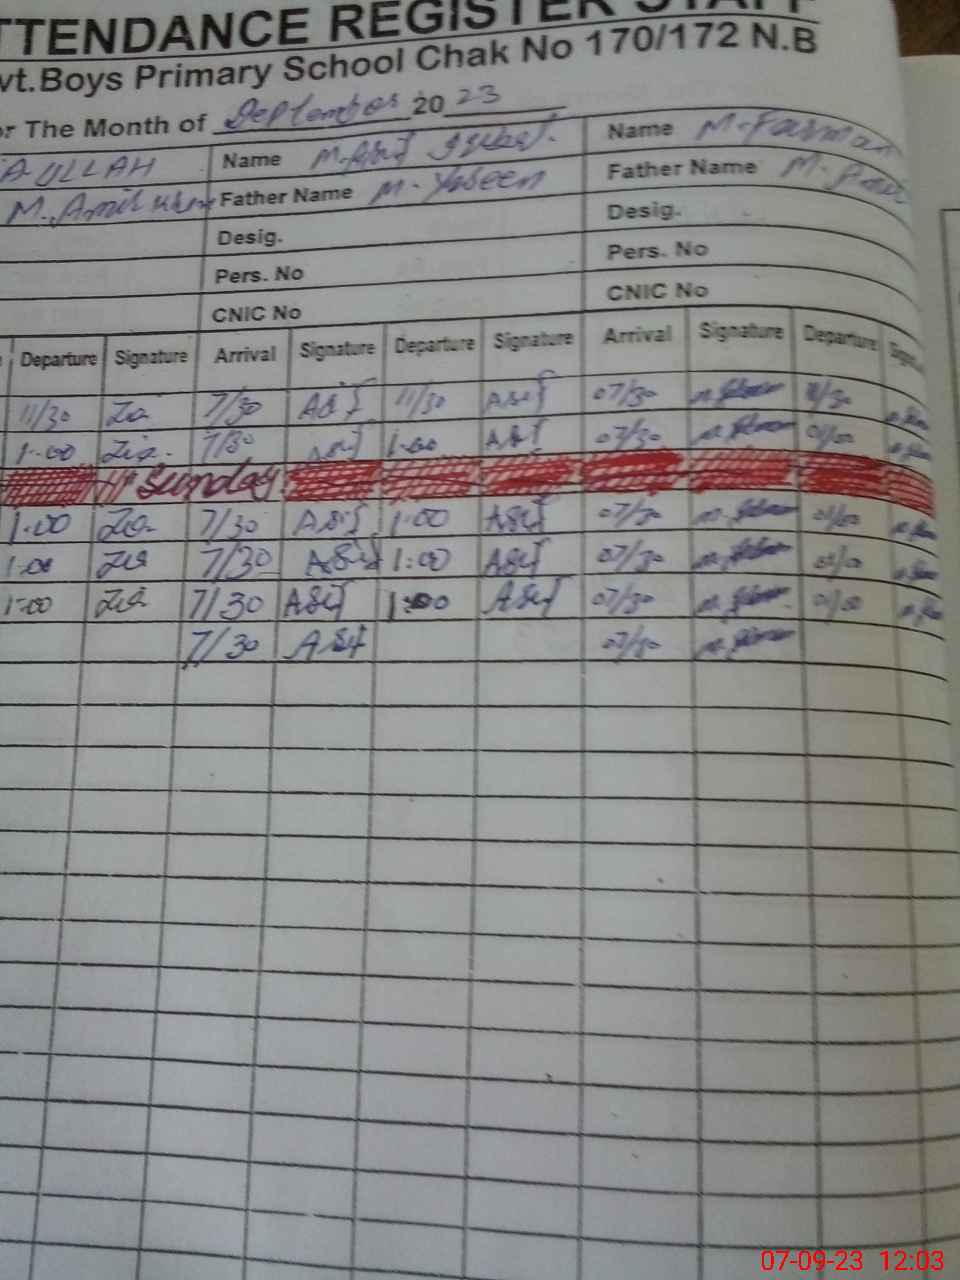 TTENDANCE REGISTER STAFF
vt.Boys Primary School Chak No 170/172 N.B
or The Month of September 2023
AULLAH Name M. Asif Iqbal. Name M. Farman
M. Amir Father Name M. Yaseen Father Name M.
Desig. Desig.
Pers. No Pers. No
CNIC No CNIC No
Departure Signature Arrival Signature Departure Signature Arrival Signature Departure
11/30 Zia 7/30 Asif 11/30 Asif 07/30 11/30
1:00 Zia 7/30 Asif 1:00 Asif 07/30 01/00
Sunday
1:00 Zia 7/30 Asif 1:00 Asif 07/30 01/00
1:00 Zia 7/30 Asif 1:00 Asif 07/30 01/00
1:00 Zia 7/30 Asif 1:00 Asif 07/30 01/00
7/30 Asif 07/30
07-09-23 12:03